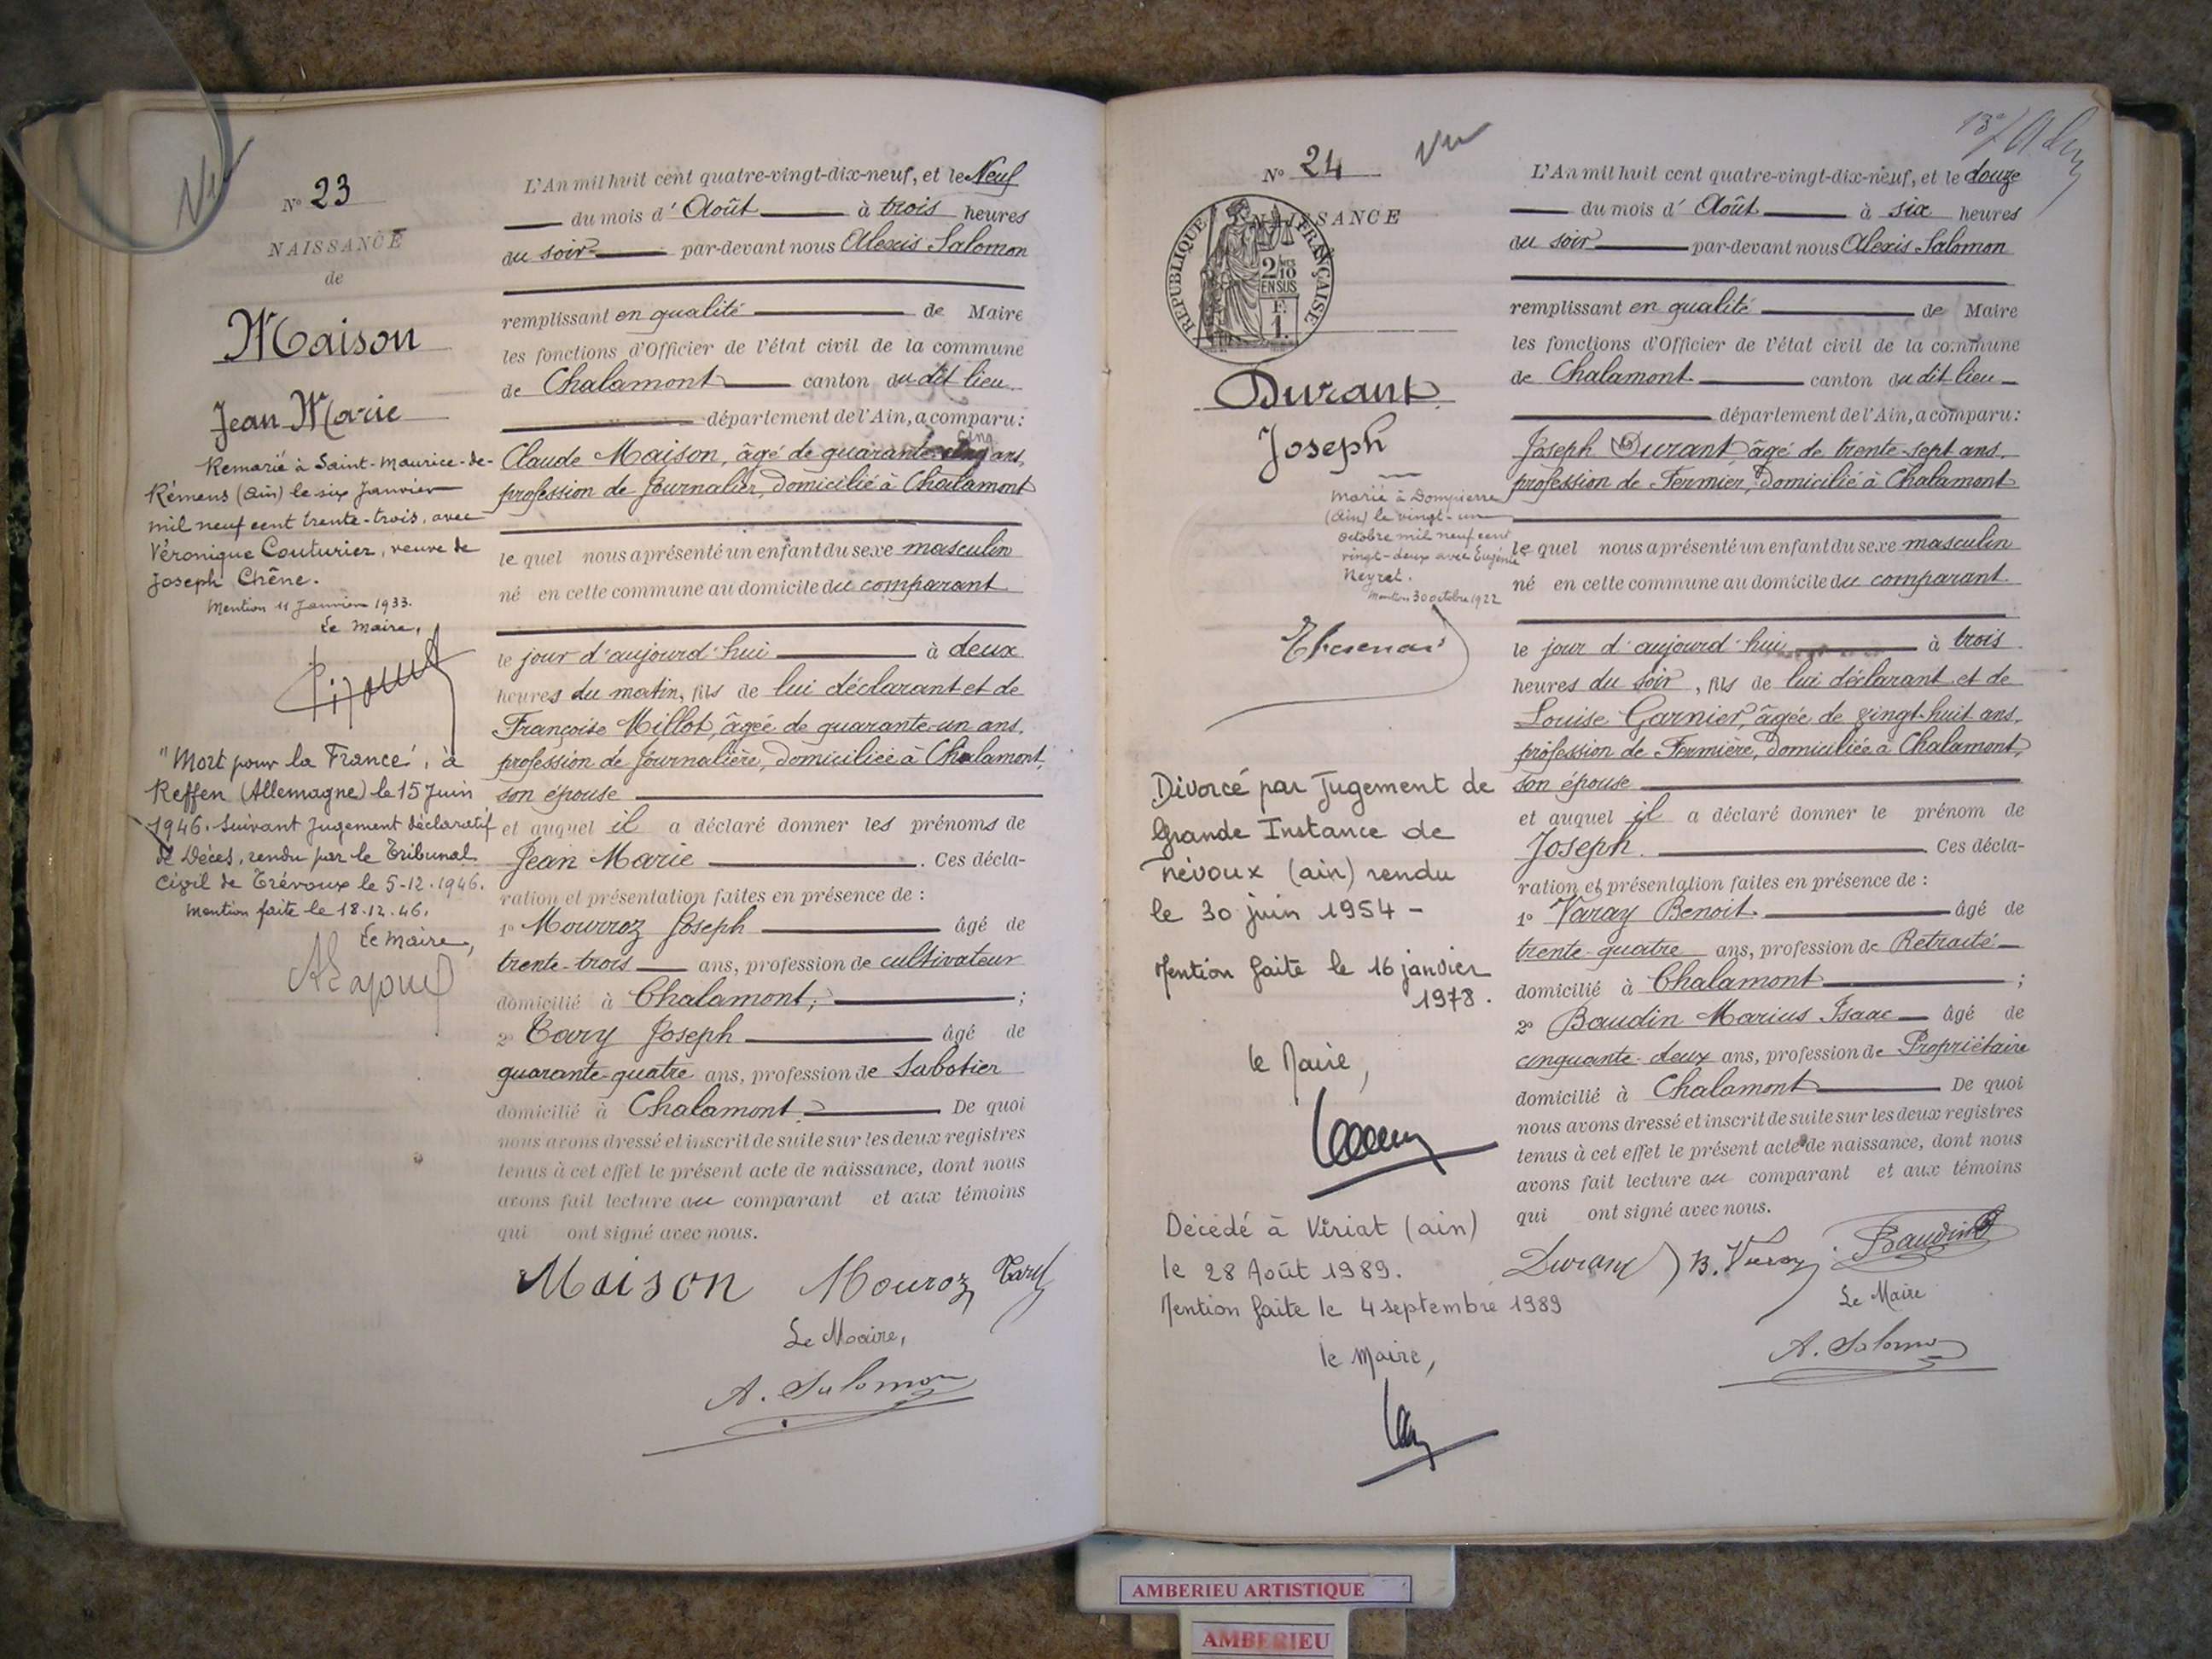 Vu
N° 23
NAISSANCE
de
Maison
Jean Marie
Remarié à Saint-Maurice-de-
Rémens (Ain) le six Janvier
mil neuf cent trente-trois, avec
Véronique Couturier, veuve de
Joseph Chêne.
Mention 11 Janvier 1933.
Le Maire,
"Mort pour la France", à
Reffen (Allemagne) le 15 Juin
1946. Suivant Jugement déclaratif
de Décès, rendu par le Tribunal
Civil de Trévoux le 5-12-1946.
Mention faite le 18.12.46.
Le Maire,
L'An mil huit cent quatre-vingt-dix-neuf, et le Neuf
du mois d'Août à trois heures
du soir par-devant nous Alexis Salomon
remplissant en qualité de Maire
les fonctions d'Officier de l'état civil de la commune
de Chalamont canton du dit lieu
département de l'Ain, a comparu:
Claude Maison, âgé de quarante cinq ans,
profession de Journalier, domicilié à Chalamont
le quel nous a présenté un enfant du sexe masculin
né en cette commune au domicile du comparant
le jour d'aujourd'hui à deux
heures du matin, fils de lui déclarant et de
Françoise Millot, âgée de quarante-un ans,
profession de Journalière, domiciliée à Chalamont,
son épouse
et auquel il a déclaré donner les prénoms de
Jean Marie. Ces décla-
ration et présentation faites en présence de :
1° Mourroz Joseph âgé de
trente-trois ans, profession de cultivateur
domicilié à Chalamont, ;
2° Tary Joseph âgé de
quarante-quatre ans, profession de Sabotier
domicilié à Chalamont De quoi
nous avons dressé et inscrit de suite sur les deux registres
tenus à cet effet le présent acte de naissance, dont nous
avons fait lecture au comparant et aux témoins
qui ont signé avec nous.
Maison Mouroz Tary
Le Maire,
A. Salomon
N° 24
Vu
NAISSANCE
RÉPUBLIQUE FRANÇAISE
2/10
EN SUS
F.
1.
Durant
Joseph
Marié à Dompierre
(Ain) le vingt-un
octobre mil neuf cent
vingt-deux avec Eugénie
Neyret.
Mention 30 octobre 1922
Divorcé par Jugement de
Grande Instance de
Trévoux (ain) rendu
le 30 juin 1954 -
Mention faite le 16 janvier
1978.
le Maire,
Décédé à Viriat (ain)
le 28 Août 1989.
Mention faite le 4 septembre 1989
le Maire,
L'An mil huit cent quatre-vingt-dix-neuf, et le douze
du mois d'Août à six heures
du soir par-devant nous Alexis Salomon
remplissant en qualité de Maire
les fonctions d'Officier de l'état civil de la commune
de Chalamont canton du dit lieu
département de l'Ain, a comparu:
Joseph Durant âgé de trente-sept ans,
profession de Fermier, domicilié à Chalamont
le quel nous a présenté un enfant du sexe masculin
né en cette commune au domicile du comparant.
le jour d'aujourd'hui à trois
heures du soir, fils de lui déclarant et de
Louise Garnier, âgée de vingt-huit ans,
profession de Fermière, domiciliée à Chalamont,
son épouse
et auquel il a déclaré donner le prénom de
Joseph. Ces décla-
ration et présentation faites en présence de :
1° Varay Benoit âgé de
trente-quatre ans, profession de Retraité
domicilié à Chalamont ;
2° Baudin Marius Isaac âgé de
cinquante-deux ans, profession de Propriétaire
domicilié à Chalamont De quoi
nous avons dressé et inscrit de suite sur les deux registres
tenus à cet effet le présent acte de naissance, dont nous
avons fait lecture au comparant et aux témoins
qui ont signé avec nous.
Durant B. Varay Baudin
Le Maire
A. Salomon
AMBERIEU ARTISTIQUE
AMBERIEU